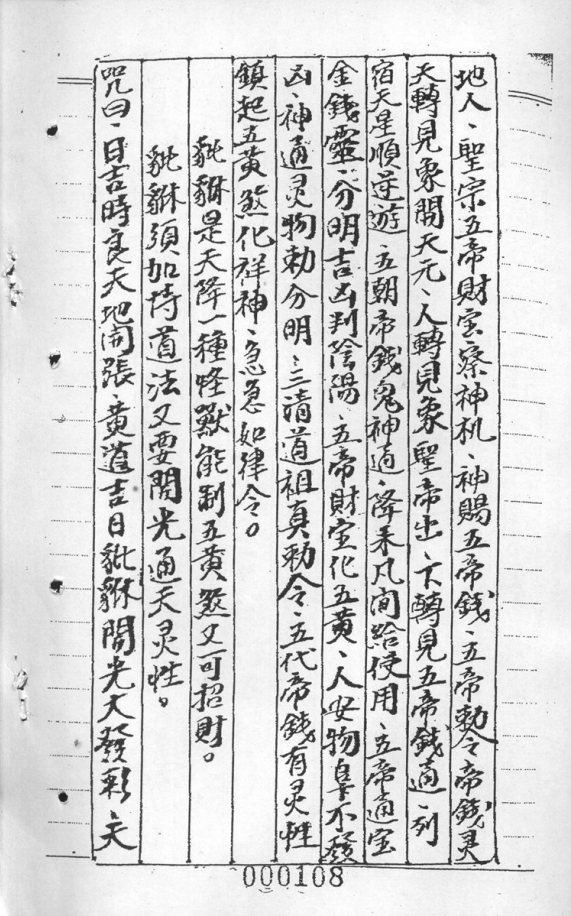 地人、聖宗五帝財宝察神机、神賜五帝錢、五帝勅令帝錢灵
天轉見象開天元、人轉見象聖帝出、下轉見五帝錢通、列
宿天星順逆遊、五朝帝錢鬼神通、降来凡间給使用、五帝通宝
金錢靈、分明吉凶判陰陽、五帝財宝化五黄、人安物阜不發
凶、神通灵物勅分明、三清道祖真勅令、五代帝錢有灵性
鎮起五黄煞化祥神、急急如律令。
貔貅是天降一種怪獸能制五黄煞又可招財。
貔貅須加持道法又要開光通天灵性。
咒曰、日吉時良天地開張、黄道吉日貔貅開光大發彩、天
000108